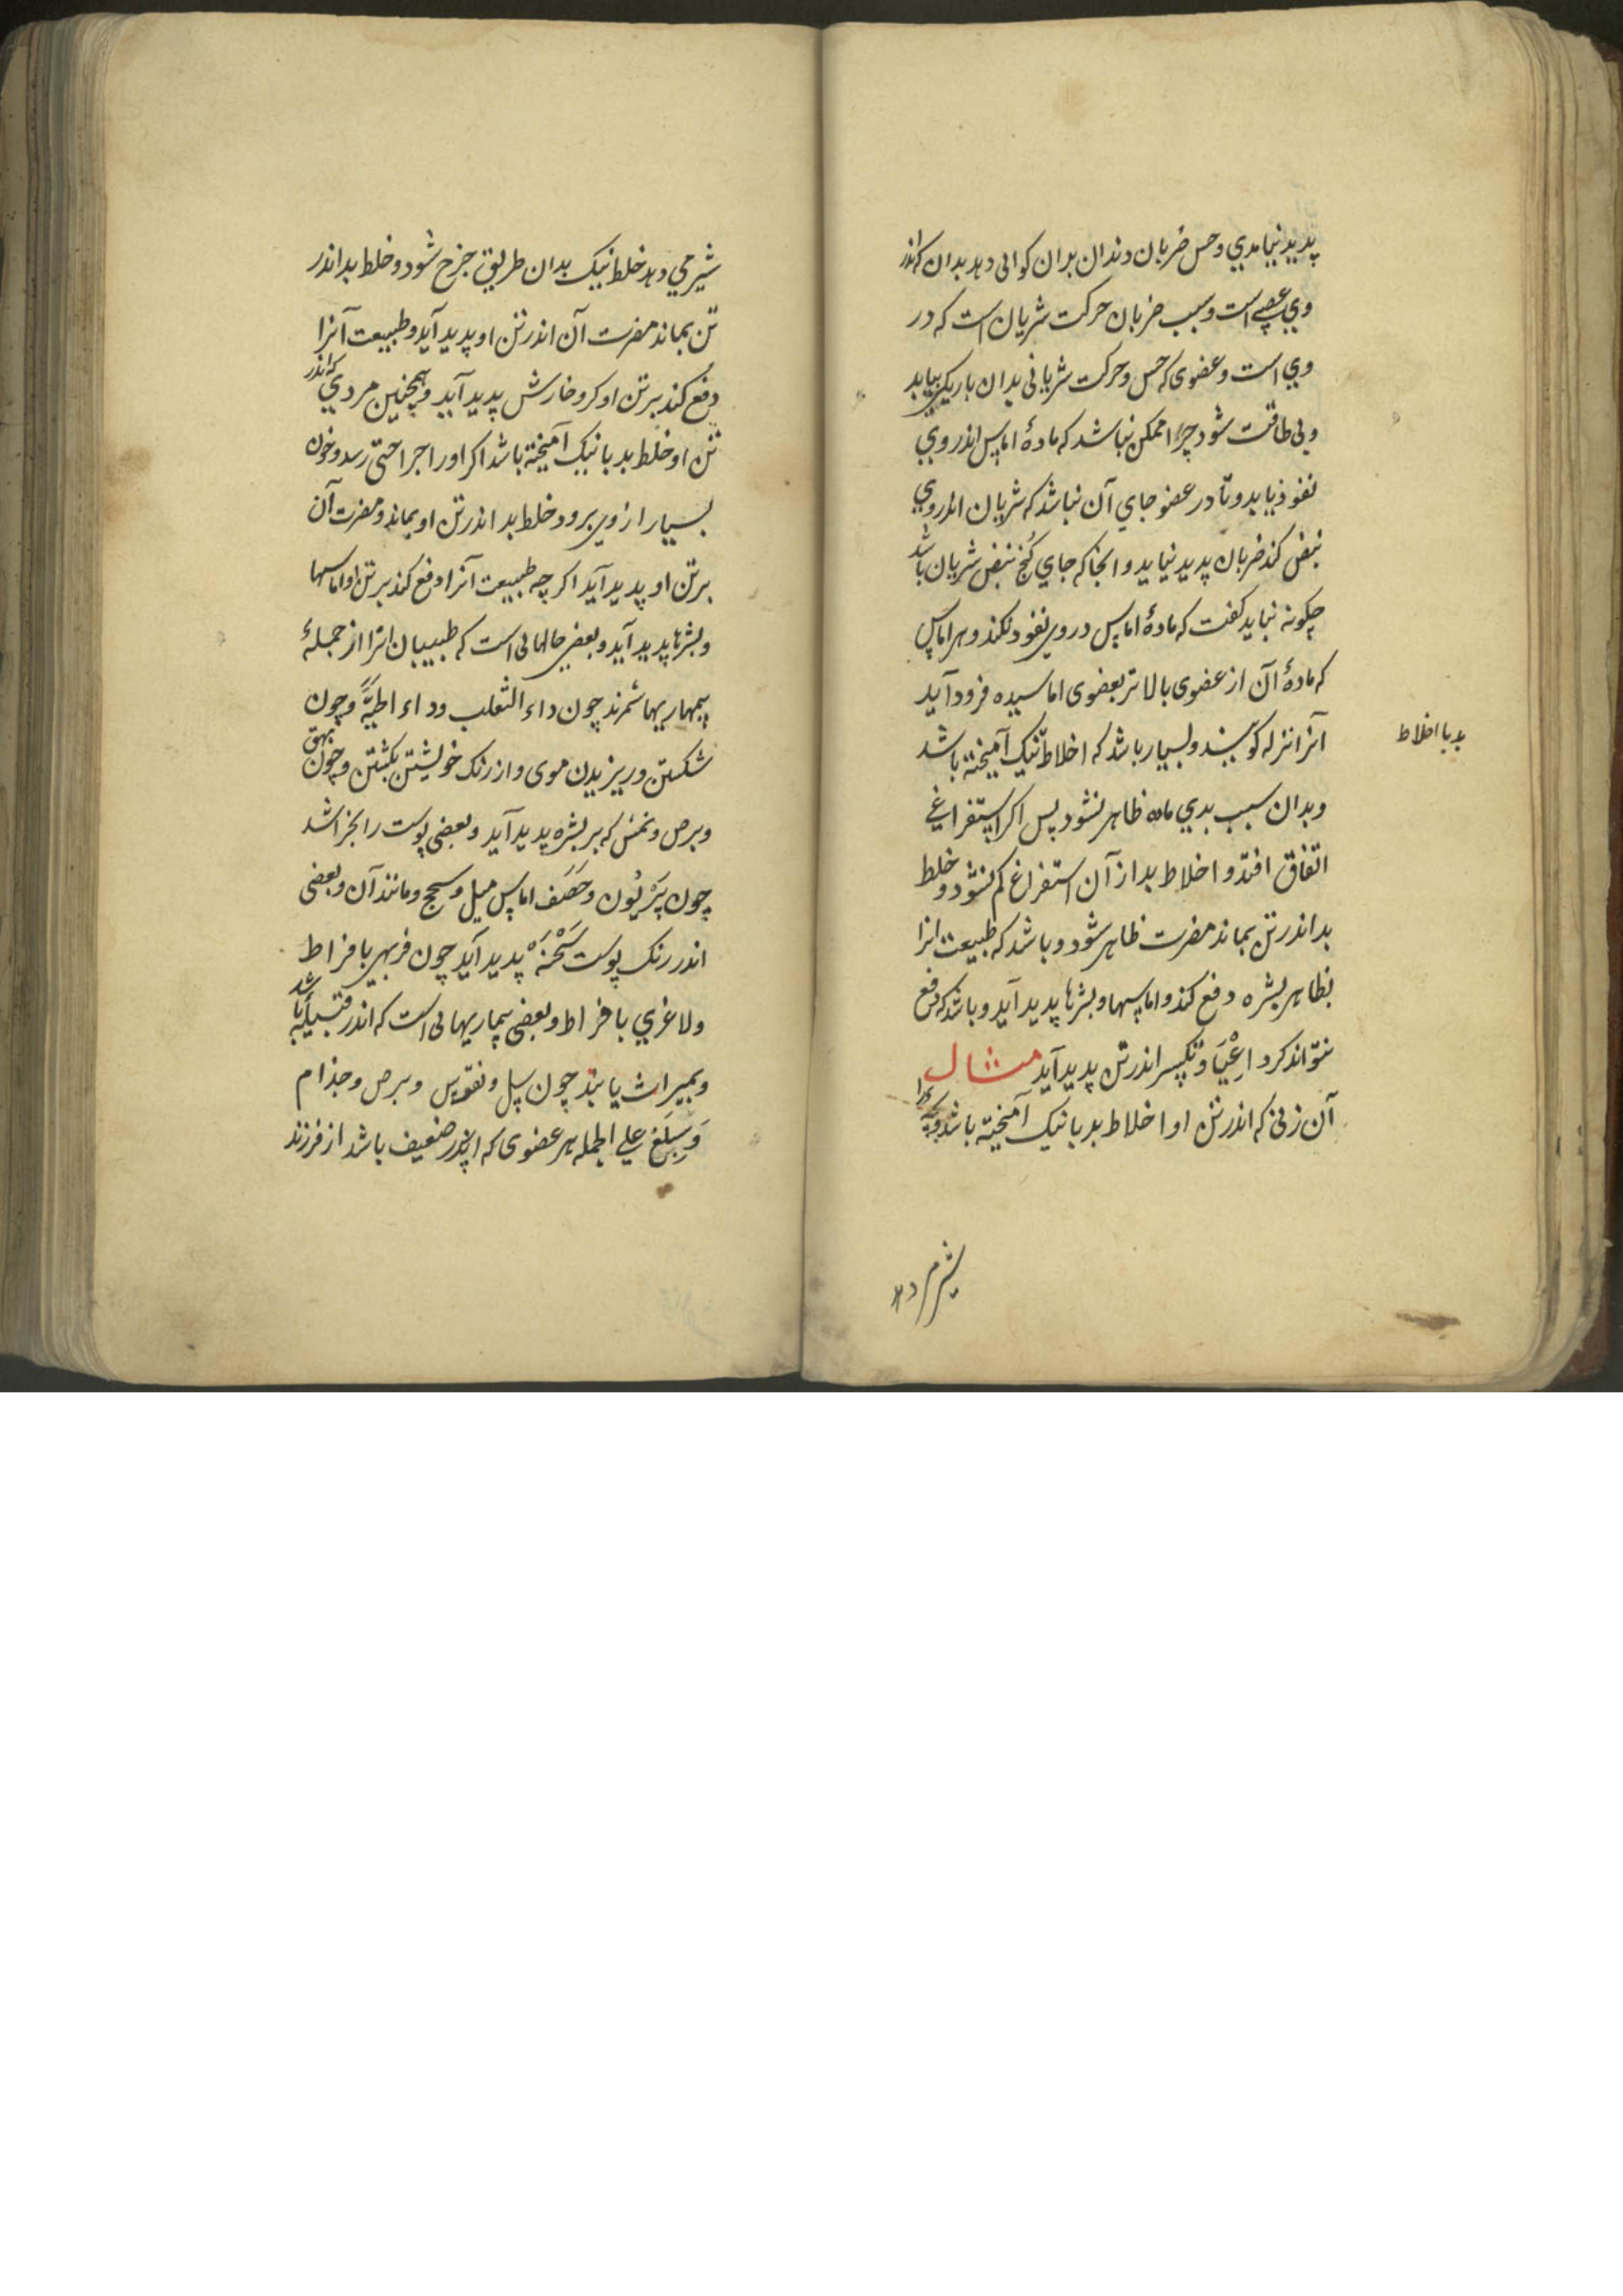 پدید نیامدی و حس ضربان دندان بدان کواهی دهد بدان که اندر
وی عصبی است و سبب ضربان حرکت شریان است که در
وی است و عضوی که حس و حرکت شریانی بدان باریکی بیابد
و بی طاقت شود چرا ممکن نباشد که مادهٔ اماس اندر وی
نفوذ یابد و تا در عضو جای آن نباشد که شریان اندر وی
نبض کند ضربان پدید نیاید و انجا که جای کنج نبض شریان باشد
چکونه نباید کفت که مادهٔ اماس در وی نفوذ نکند و هر اماس
که مادهٔ آن از عضوی بالاتر بعضوی اماسیده فرود آید
آنرا نزله کویند و بسیار باشد که اخلاط نیک آمیخته باشد
بد با اخلاط
و بدان سبب بدی ماده ظاهر نشود پس اکر استفراغی
اتفاق افتد و اخلاط بد از آن استفراغ کم نشود و خلط
بد اندر تن بماند مضرت ظاهر شود و باشد که طبیعت انرا
بظاهر بشره دفع کند و اماسها و بثرها پدید آید و باشد که دفع
نتواند کرد اعیا و تکسر اندر تن پدید آید مثال
آن زنی که اندر تن او اخلاط بد با نیک آمیخته باشد و بچه را
شیر می دهد
شیر می دهد خلط نیک بدان طریق خرج شود و خلط بد اندر
تن بماند مضرت آن اندر تن او پدید آید و طبیعت آنرا
دفع کند بر تن او کر و خارش پدید آید و همچنین مردی که اندر
تن او خلط بد با نیک آمیخته باشد اکر او را جراحتی رسد و خون
بسیار از وی برود خلط بد اندر تن او بماند و مضرت آن
بر تن او پدید آید اکر چه طبیعت آنرا دفع کند بر تن او اماسها
و بثرها پدید آید و بعضی حالهائی است که طبیبان انرا از جملهٔ
بیماریها شمرند چون داء الثعلب و داء الحیة و چون
شکستن و ریزیدن موی و از رنک خویشتن بکشتن و چون بهق
و برص و نمش که بر بشره پدید آید و بعضی پوست را بخراشد
چون پریون و حصف اماس میل و سحج و مانند آن و بعضی
اندر رنک پوست سحنه پدید آید چون فربهی بافراط
و لاغری بافراط و بعضی بیماریهائی است که اندر قبیله باشد
و بمیراث یابند چون سل و نقرس و برص و جذام
علی الجمله هر عضوی که اندر ضعیف باشد از فرزند